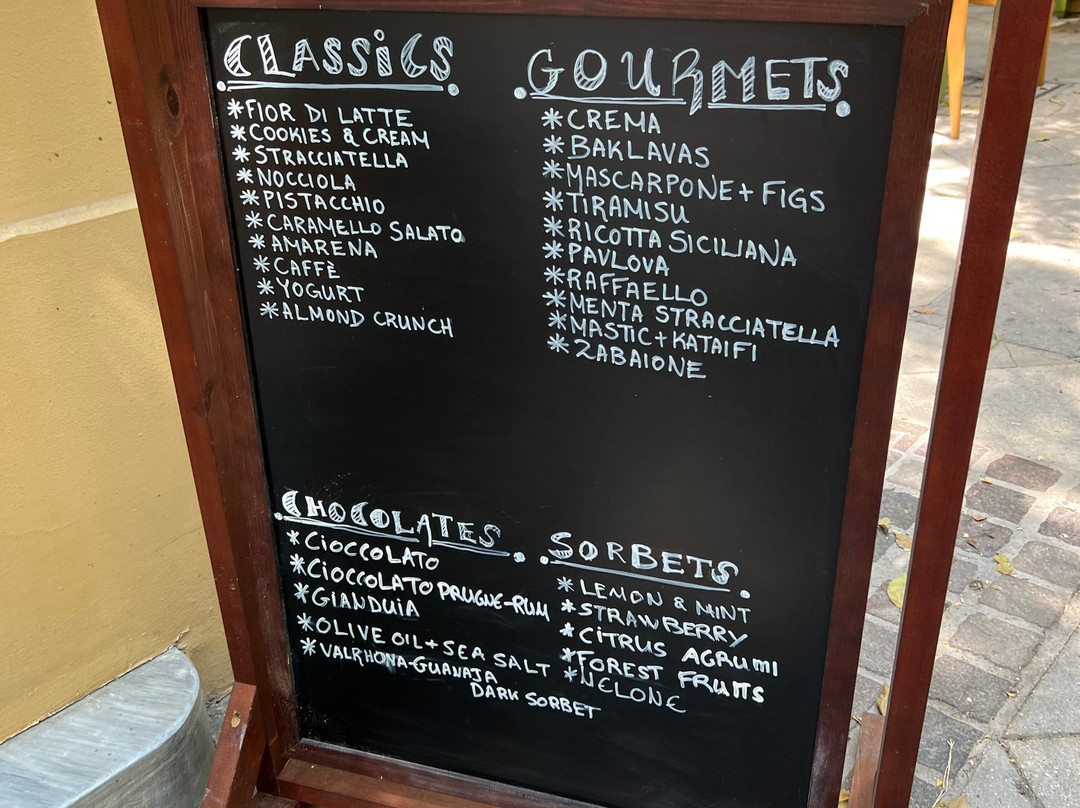 CLASSiCS
*FIOR DI LATTE
*COOKIES & CREAM
*STRACCIATELLA
*NOCCIOLA
*PISTACCHIO
*CARAMELLO SALATO
*AMARENA
*CAFFÈ
*YOGURT
*ALMOND CRUNCH
GOURMETS
*CREMA
*BAKLAVAS
*MASCARPONE + FIGS
*TIRAMISU
*RICOTTA SICILIANA
*PAVLOVA
*RAFFAELLO
*MENTA STRACCIATELLA
*MASTIC + KATAIFI
*ZABAIONE
CHOCOLATES
*CIOCCOLATO
*CIOCCOLATO PRUGNE-RUM
*GIANDUIA
*OLIVE OIL + SEA SALT
*VALRHONA-GUANAJA
DARK SORBET
SORBETS
*LEMON & MINT
*STRAWBERRY
*CITRUS AGRUMI
*FOREST FRUITS
*MELONE